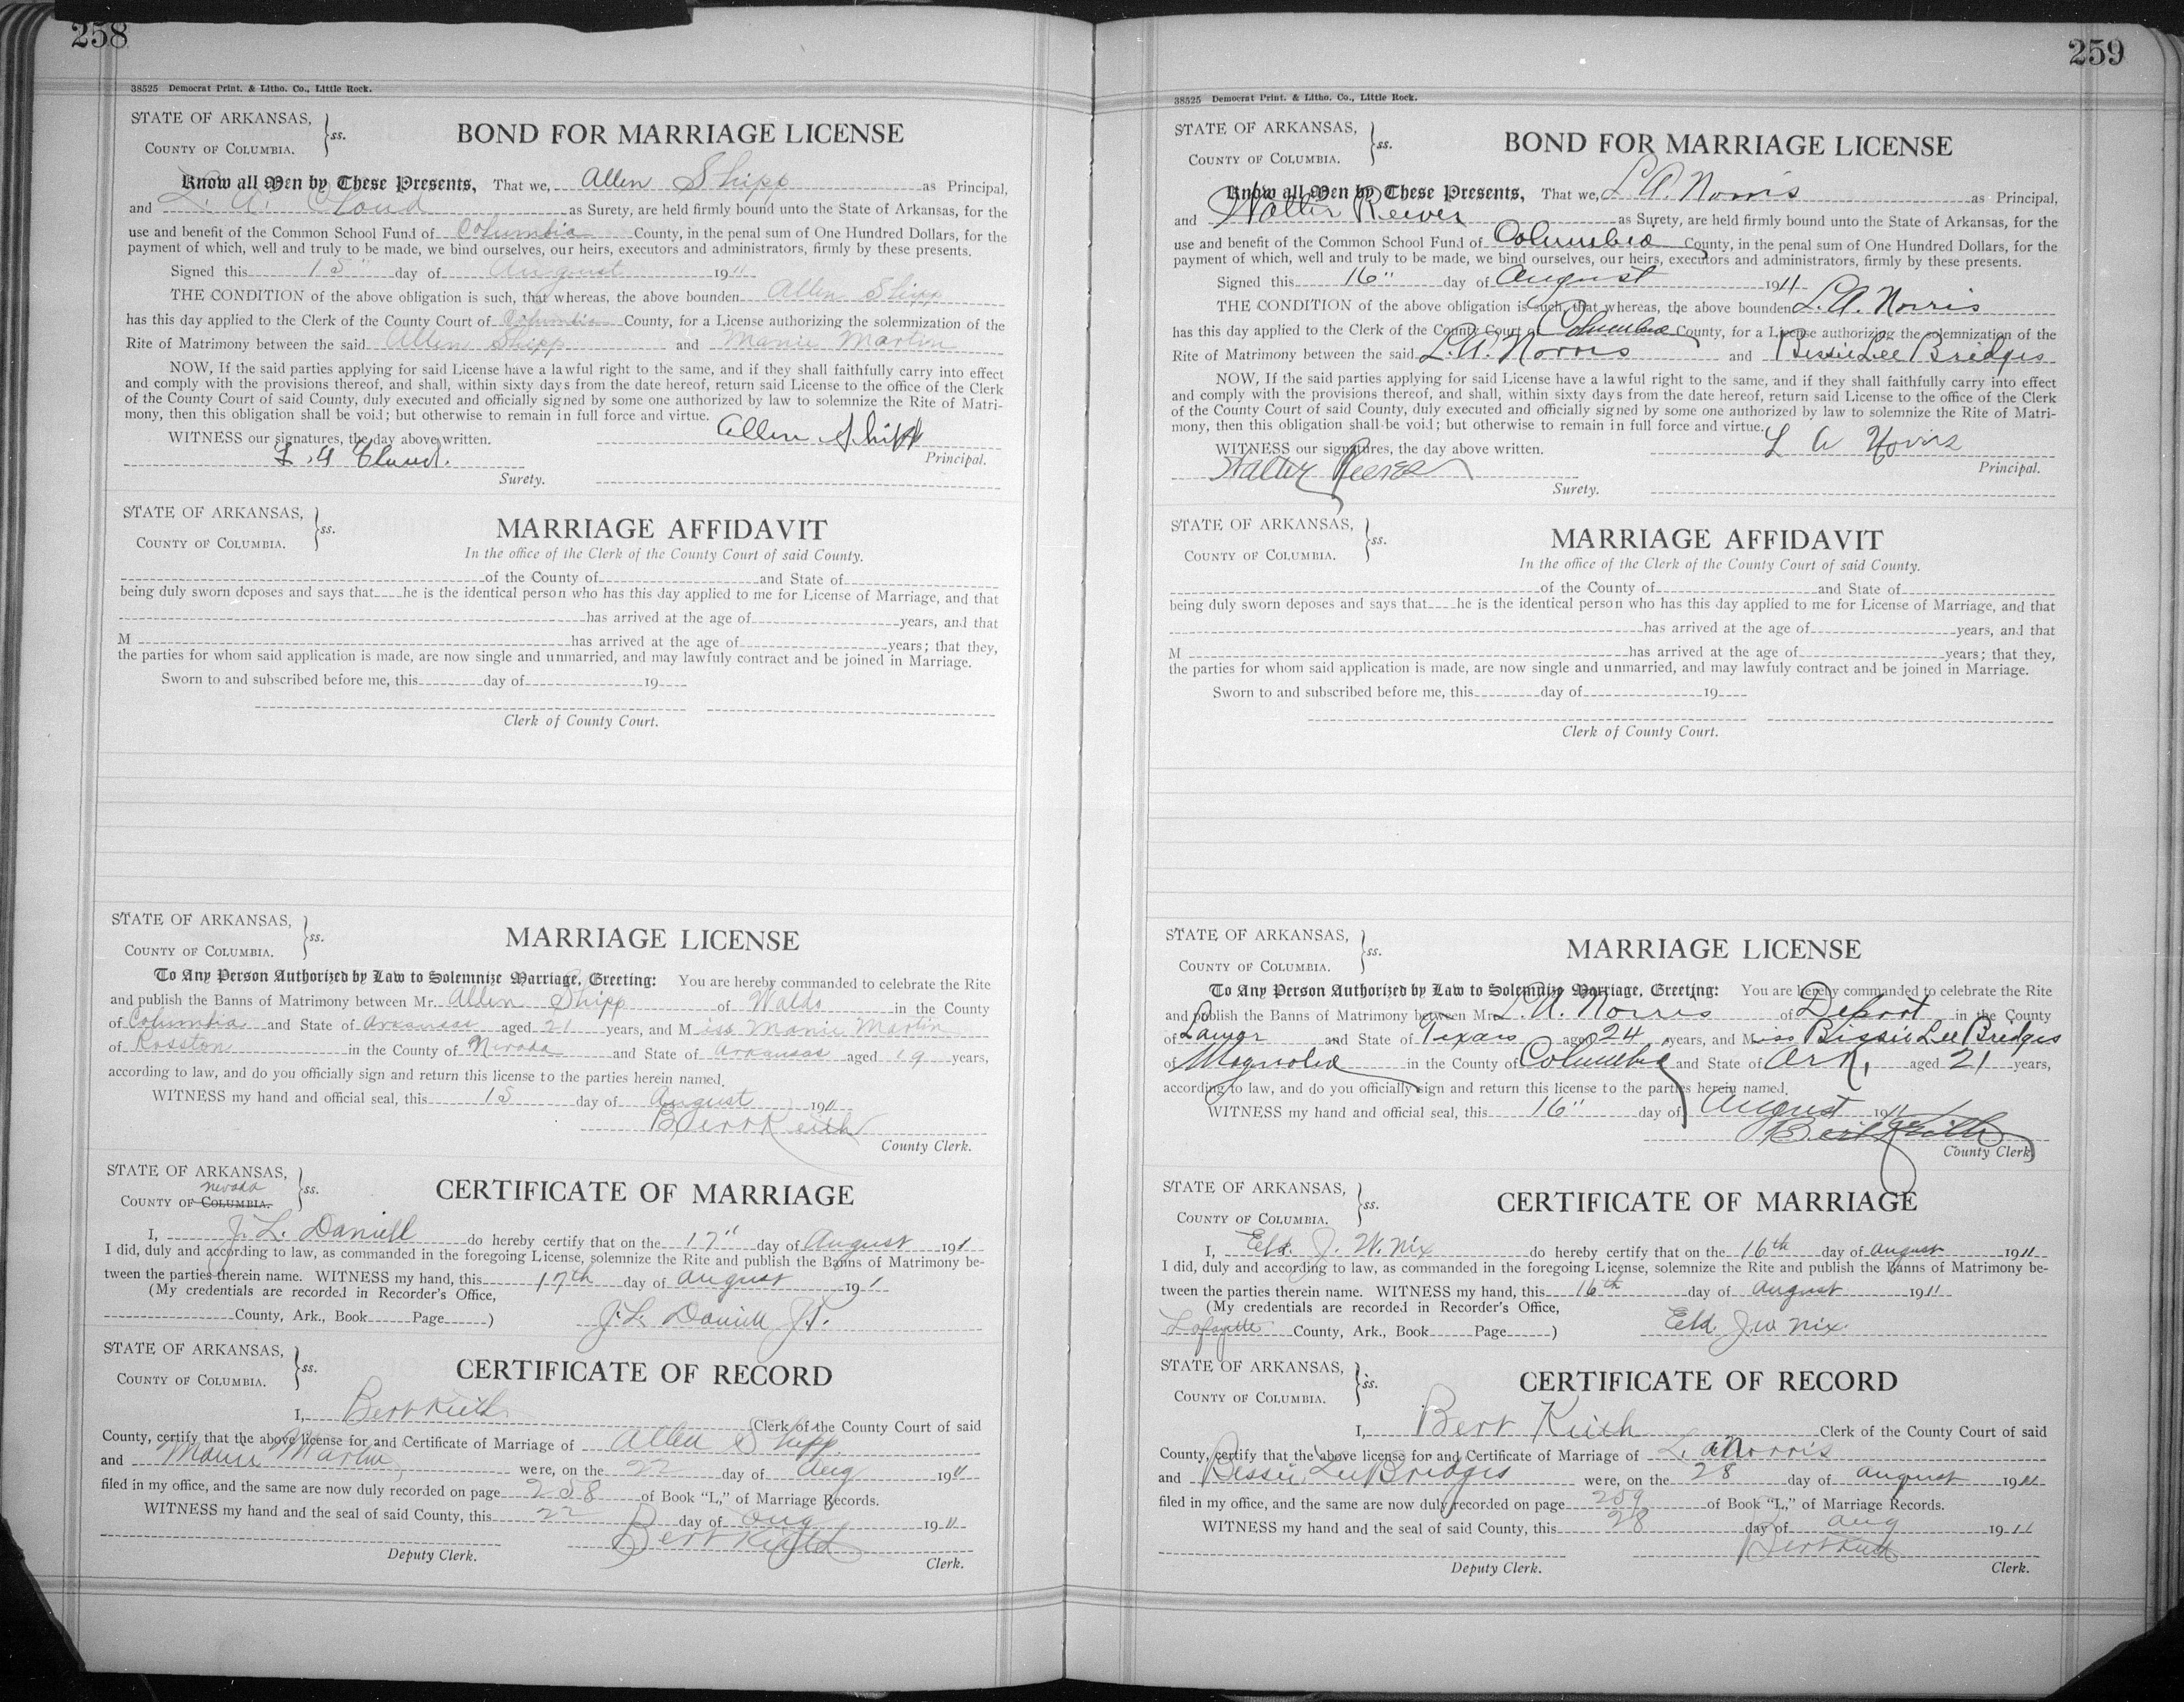 258
38525 Democrat Print. & Litho. Co., Little Rock.
STATE OF ARKANSAS,
COUNTY OF COLUMBIA.
ss.
BOND FOR MARRIAGE LICENSE
Know all Men by These Presents, That we, Allen Shipp as Principal,
and L. A. Cloud as Surety, are held firmly bound unto the State of Arkansas, for the
use and benefit of the Common School Fund of Columbia County, in the penal sum of One Hundred Dollars, for the
payment of which, well and truly to be made, we bind ourselves, our heirs, executors and administrators, firmly by these presents.
Signed this 15" day of August 1911
THE CONDITION of the above obligation is such, that whereas, the above bounden Allen Shipp
has this day applied to the Clerk of the County Court of Columbia County, for a License authorizing the solemnization of the
Rite of Matrimony between the said Allen Shipp and Manie Martin
NOW, If the said parties applying for said License have a lawful right to the same, and if they shall faithfully carry into effect
and comply with the provisions thereof, and shall, within sixty days from the date hereof, return said License to the office of the Clerk
of the County Court of said County, duly executed and officially signed by some one authorized by law to solemnize the Rite of Matri-
mony, then this obligation shall be void; but otherwise to remain in full force and virtue.
WITNESS our signatures, the day above written. Allen Shipp
L. A Cloud. Principal.
Surety.
STATE OF ARKANSAS,
COUNTY OF COLUMBIA.
ss.
MARRIAGE AFFIDAVIT
In the office of the Clerk of the County Court of said County.
of the County of and State of
being duly sworn deposes and says that he is the identical person who has this day applied to me for License of Marriage, and that
has arrived at the age of years, and that
M has arrived at the age of years; that they,
the parties for whom said application is made, are now single and unmarried, and may lawfuly contract and be joined in Marriage.
Sworn to and subscribed before me, this day of 19
Clerk of County Court.
STATE OF ARKANSAS,
COUNTY OF COLUMBIA.
ss.
MARRIAGE LICENSE
To Any Person Authorized by Law to Solemnize Marriage, Greeting: You are hereby commanded to celebrate the Rite
and publish the Banns of Matrimony between Mr. Allen Shipp of Waldo in the County
of Columbia and State of Arkansas aged 21 years, and Miss Manie Martin
of Rosston in the County of Nevada and State of Arkansas aged 19 years,
according to law, and do you officially sign and return this license to the parties herein named.
WITNESS my hand and official seal, this 15 day of August 1911
Bert Keith
County Clerk.
STATE OF ARKANSAS,
Nevada
COUNTY OF COLUMBIA.
ss.
CERTIFICATE OF MARRIAGE
I, J. L. Daniell do hereby certify that on the 17" day of August 191
I did, duly and according to law, as commanded in the foregoing License, solemnize the Rite and publish the Banns of Matrimony be-
tween the parties therein name. WITNESS my hand, this 17th day of August 191
(My credentials are recorded in Recorder's Office,
County, Ark., Book Page ) J. L. Daniell J.P.
STATE OF ARKANSAS,
COUNTY OF COLUMBIA.
ss.
CERTIFICATE OF RECORD
I, Bert Keith Clerk of the County Court of said
County, certify that the above license for and Certificate of Marriage of Allen Shipp
and Manie Martin were, on the 22 day of Aug 1911
filed in my office, and the same are now duly recorded on page 258 of Book "L," of Marriage Records.
WITNESS my hand and the seal of said County, this 22 day of Aug 1911
Bert Keith
Deputy Clerk. Clerk.
259
38525 Democrat Print. & Litho. Co., Little Rock.
STATE OF ARKANSAS,
COUNTY OF COLUMBIA.
ss.
BOND FOR MARRIAGE LICENSE
Know all Men by These Presents, That we, L. A. Norris as Principal,
and Walter Reeves as Surety, are held firmly bound unto the State of Arkansas, for the
use and benefit of the Common School Fund of Columbia County, in the penal sum of One Hundred Dollars, for the
payment of which, well and truly to be made, we bind ourselves, our heirs, executors and administrators, firmly by these presents.
Signed this 16" day of August 1911
THE CONDITION of the above obligation is such, that whereas, the above bounden L. A. Norris
has this day applied to the Clerk of the County Court of Columbia County, for a License authorizing the solemnization of the
Rite of Matrimony between the said L. A. Norris and Bessie Lee Bridges
NOW, If the said parties applying for said License have a lawful right to the same, and if they shall faithfully carry into effect
and comply with the provisions thereof, and shall, within sixty days from the date hereof, return said License to the office of the Clerk
of the County Court of said County, duly executed and officially signed by some one authorized by law to solemnize the Rite of Matri-
mony, then this obligation shall be void; but otherwise to remain in full force and virtue.
WITNESS our signatures, the day above written. L A Norris
Walter Reeves Principal.
Surety.
STATE OF ARKANSAS,
COUNTY OF COLUMBIA.
ss.
MARRIAGE AFFIDAVIT
In the office of the Clerk of the County Court of said County.
of the County of and State of
being duly sworn deposes and says that he is the identical person who has this day applied to me for License of Marriage, and that
has arrived at the age of years, and that
M has arrived at the age of years; that they,
the parties for whom said application is made, are now single and unmarried, and may lawfuly contract and be joined in Marriage.
Sworn to and subscribed before me, this day of 19
Clerk of County Court.
STATE OF ARKANSAS,
COUNTY OF COLUMBIA.
ss.
MARRIAGE LICENSE
To Any Person Authorized by Law to Solemnize Marriage, Greeting: You are hereby commanded to celebrate the Rite
and publish the Banns of Matrimony between Mr. L. A. Norris of Deport in the County
of Lamar and State of Texas aged 24 years, and Miss Bessie Lee Bridges
of Magnolia in the County of Columbia and State of Ark, aged 21 years,
according to law, and do you officially sign and return this license to the parties herein named.
WITNESS my hand and official seal, this 16" day of August 1911
Bert Keith
County Clerk
STATE OF ARKANSAS,
COUNTY OF COLUMBIA.
ss.
CERTIFICATE OF MARRIAGE
I, Eld. J. W. Nix do hereby certify that on the 16th day of August 1911
I did, duly and according to law, as commanded in the foregoing License, solemnize the Rite and publish the Banns of Matrimony be-
tween the parties therein name. WITNESS my hand, this 16th day of August 1911
(My credentials are recorded in Recorder's Office,
Lafayette County, Ark., Book Page ) Eld. J. W Nix.
STATE OF ARKANSAS,
COUNTY OF COLUMBIA.
ss.
CERTIFICATE OF RECORD
I, Bert Keith Clerk of the County Court of said
County, certify that the above license for and Certificate of Marriage of L. A Norris
and Bessie Lee Bridges were, on the 28 day of August 1911
filed in my office, and the same are now duly recorded on page 259 of Book "L," of Marriage Records.
WITNESS my hand and the seal of said County, this 28 day of Aug 1911
Bert Keith
Deputy Clerk. Clerk.